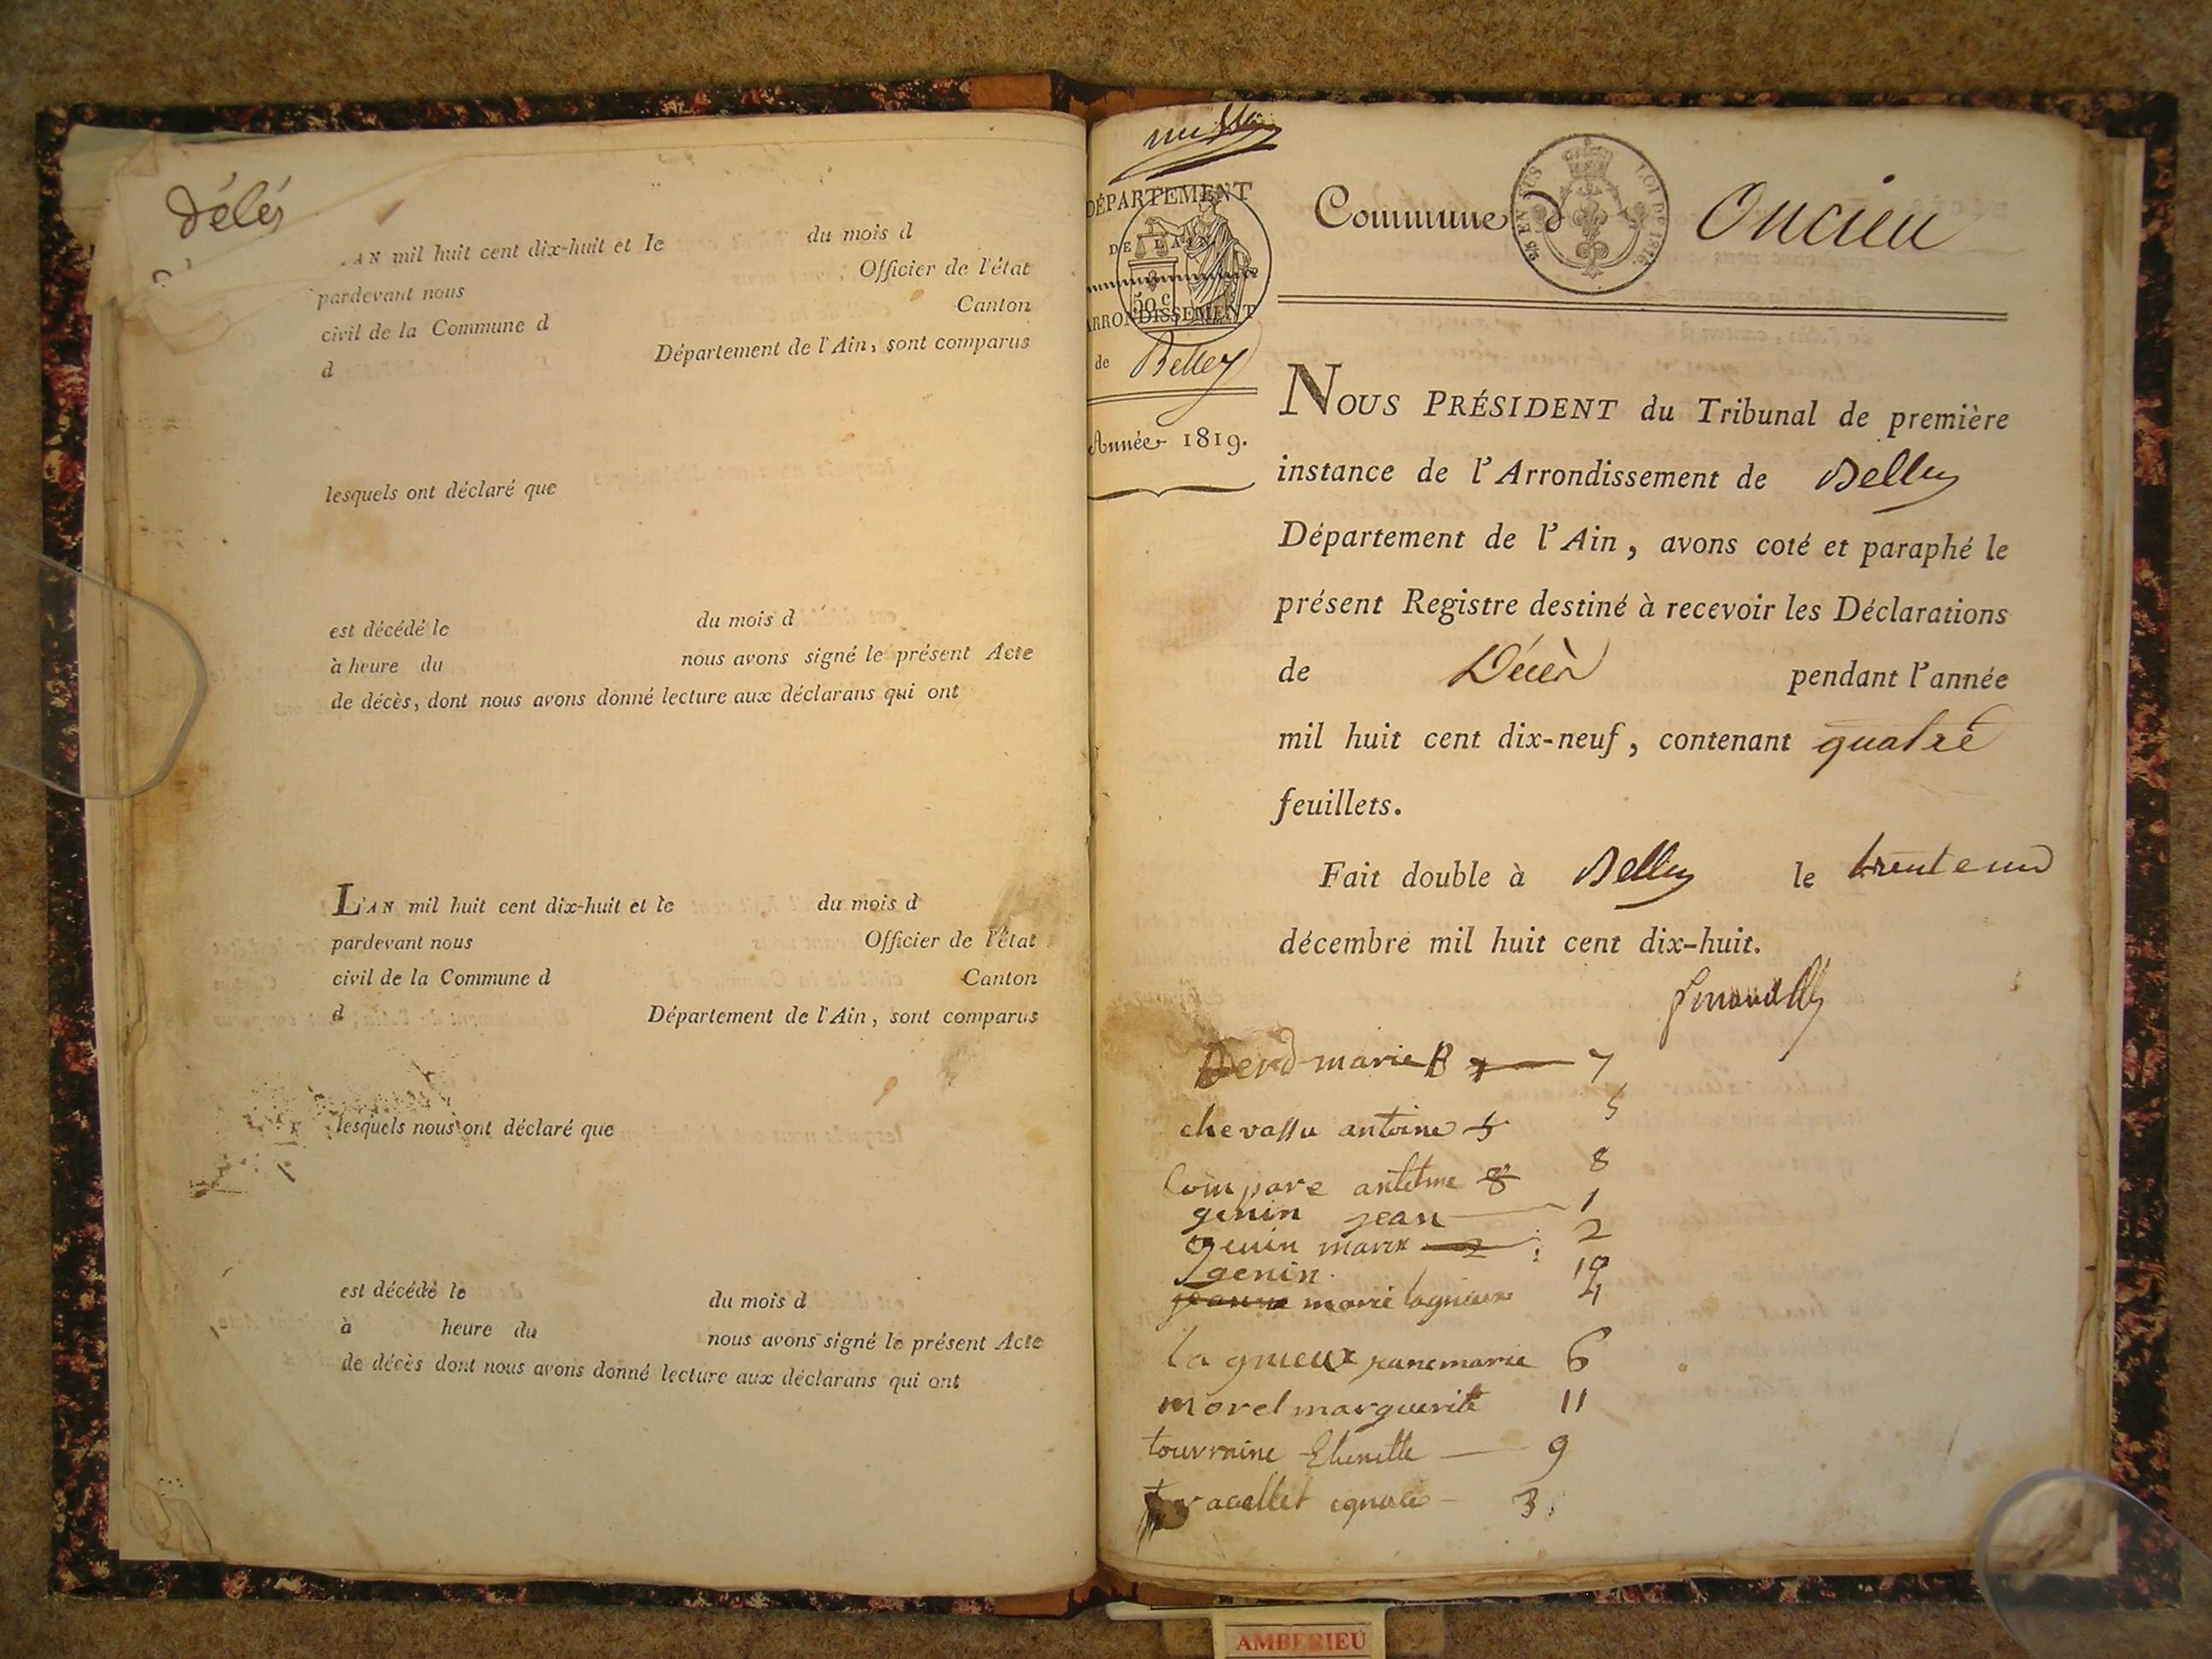 délés
L'AN mil huit cent dix-huit et le du mois d
pardevant nous Officier de l'état
civil de la Commune d Canton
d Département de l'Ain, sont comparus
lesquels ont déclaré que
est décédé le du mois d
à heure du nous avons signé le présent Acte
de décès, dont nous avons donné lecture aux déclarans qui ont
L'AN mil huit cent dix-huit et le du mois d
pardevant nous Officier de l'état
civil de la Commune d Canton
d Département de l'Ain, sont comparus
lesquels nous ont déclaré que
est décédé le du mois d
à heure du nous avons signé le présent Acte
de décès dont nous avons donné lecture aux déclarans qui ont
DÉPARTEMENT
DE L'AIN
50 c
ARRONDISSEMENT
de Belley
Année 1819.
Commune d Oncieu
LOI DE 1816.
NOUS PRÉSIDENT du Tribunal de première
instance de l'Arrondissement de Belley
Département de l'Ain, avons coté et paraphé le
présent Registre destiné à recevoir les Déclarations
de Décès pendant l'année
mil huit cent dix-neuf, contenant quatre
feuillets.
Fait double à Belley le trente un
décembre mil huit cent dix-huit.
marie B 7
chevassu antoine 5 5
Compare antelme 8 8
genin jean 1
genin marie 2 2
genin 10
jeanne marie lagnieux 4
lagnieux jeanemarie 6
morel marguerite 11
tourraine Etienette 9
tracellet ignace 3
AMBERIEU